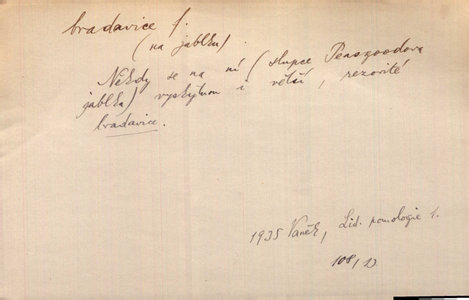 bradavice f.
(na jablku).
Někdy se na ní (slupce Peasgoodova
jablka) vyskytnou i větší, rezovité
bradavice.
1935 Vaněk, Lid. pomologie 1.
108/13